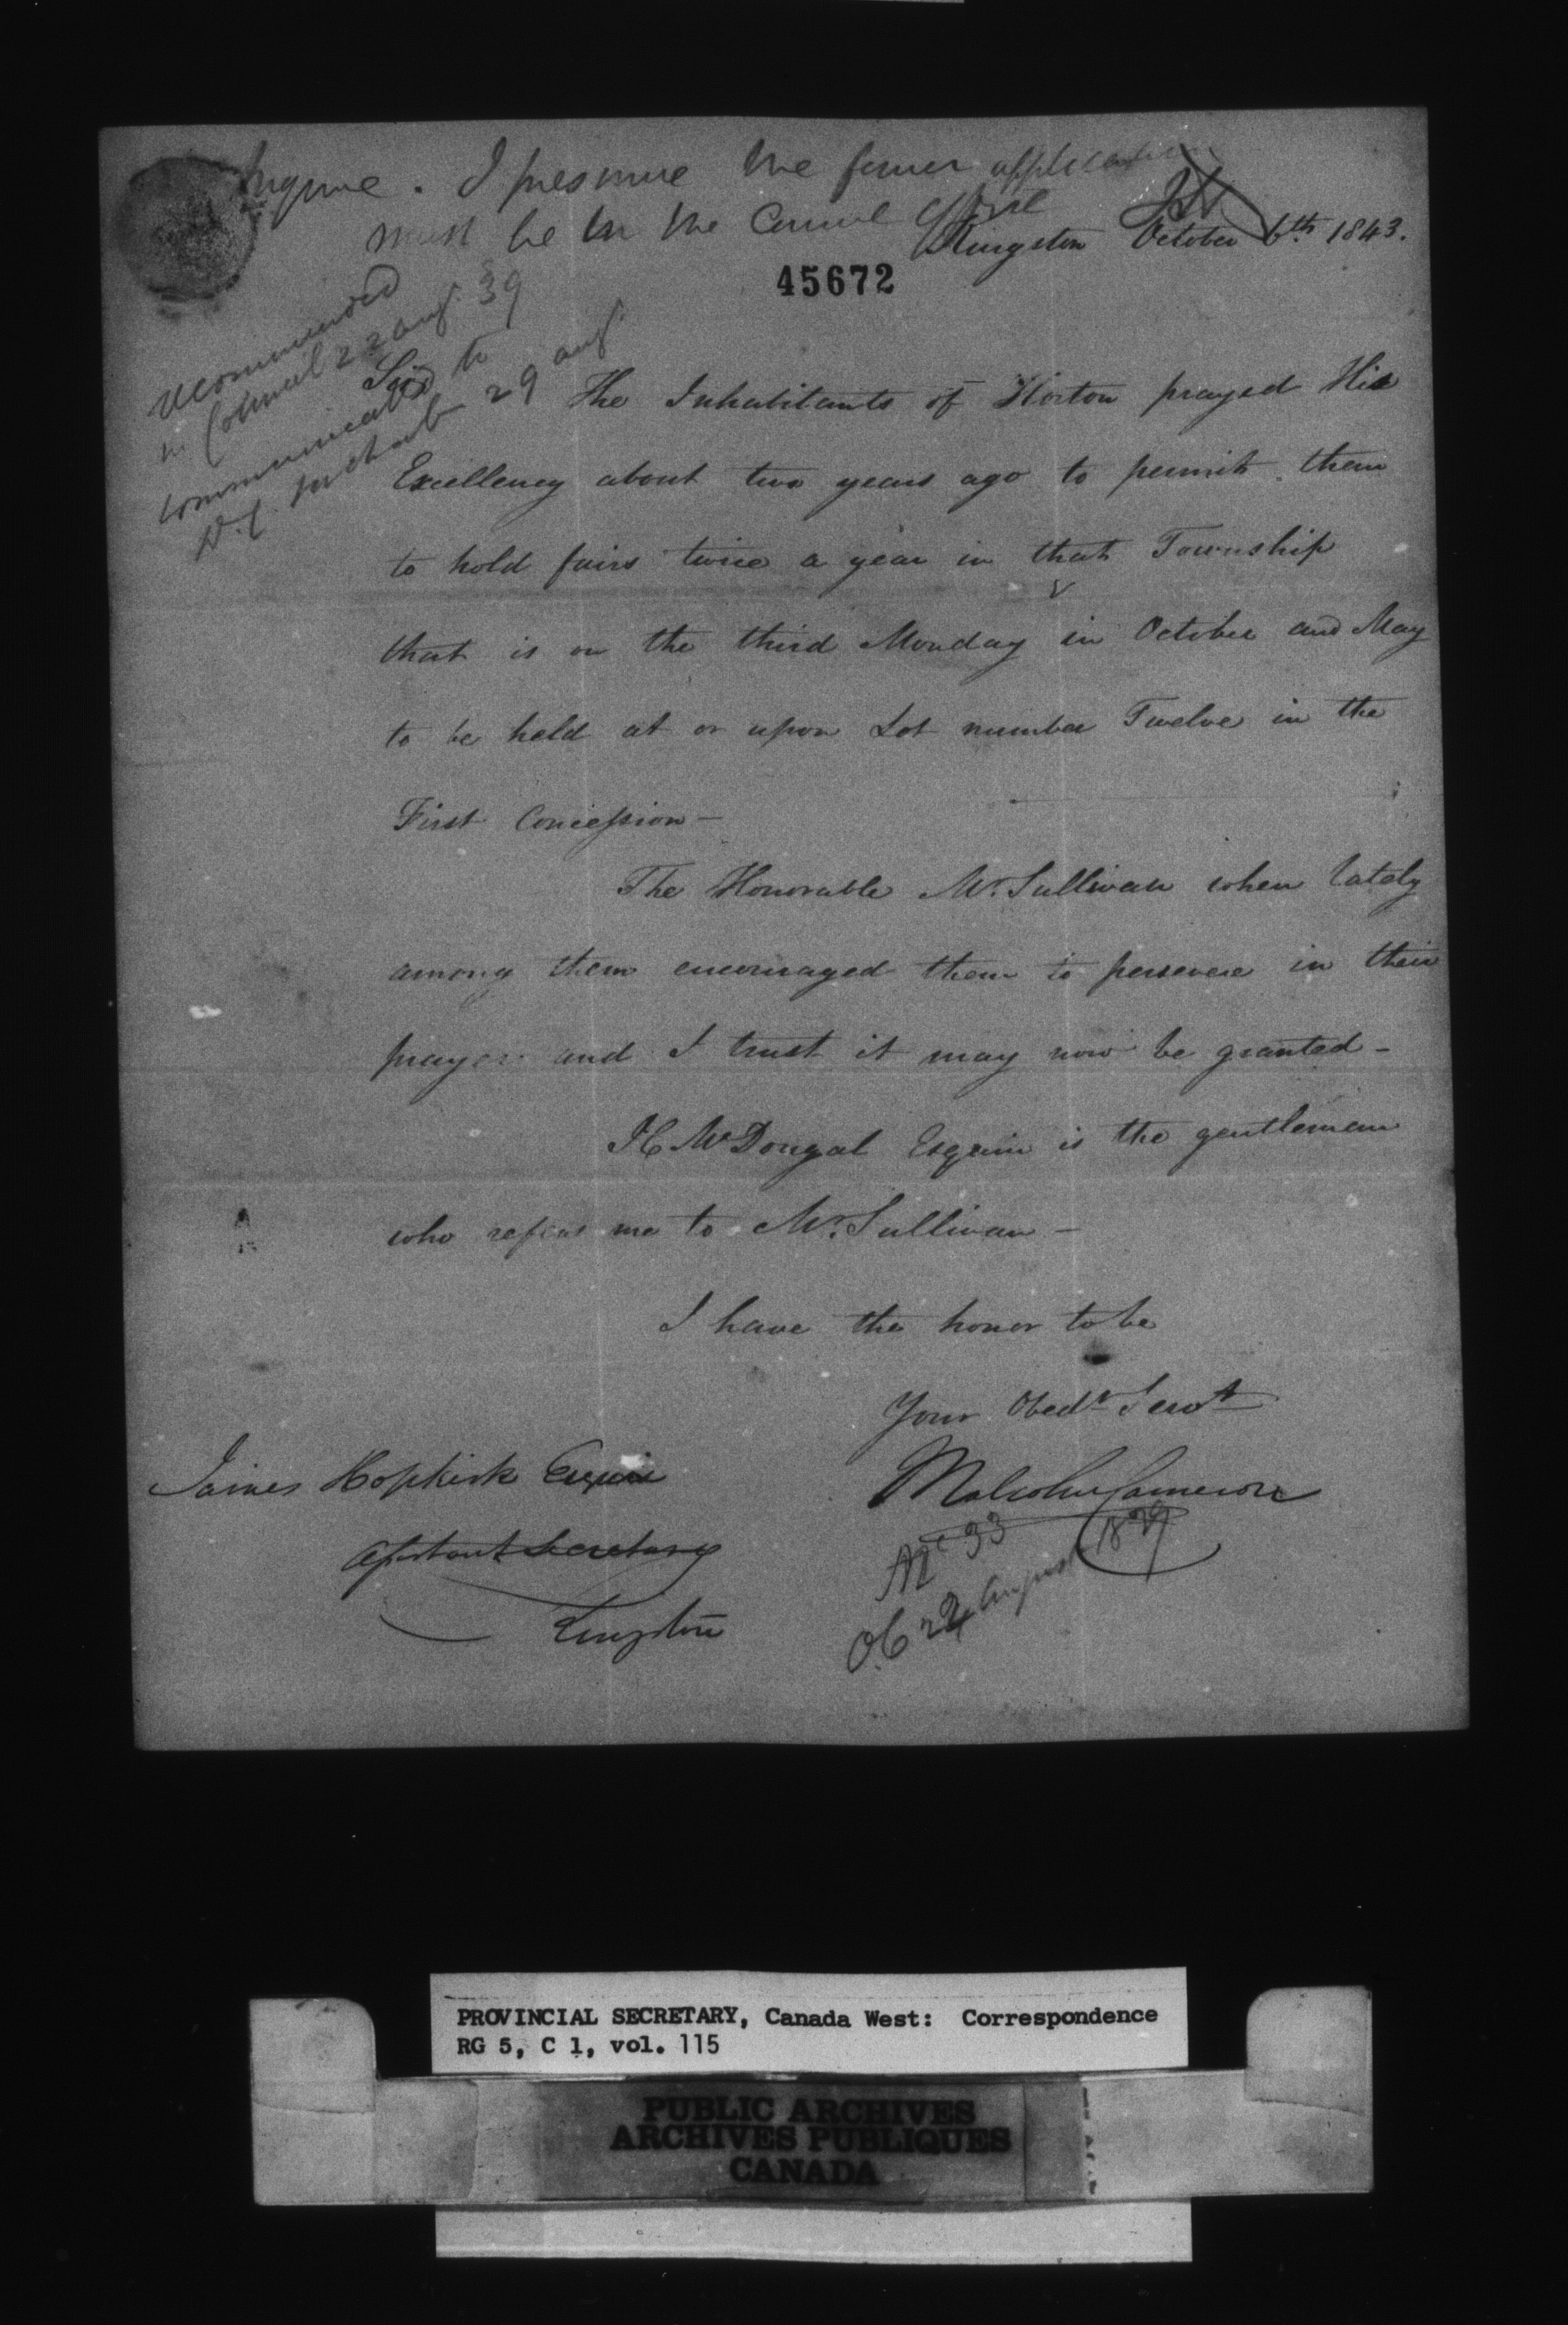 Inquire. I presume the former application
must be in the Council Office
Kingston October 6th 1843.
45672
recommended
in Council 22 Aug. 39
communicated to
29 Aug.
Sir
The Inhabitants of Horton prayed His
Excellency about two years ago to permit them
to hold fairs twice a year in that Township
that is on the third Monday in October and May
to be held at or upon Lot number Twelve in the
First Concession—
The Honorable Mr. Sullivan when lately
among them encouraged them to persevere in their
prayer and I trust it may now be granted—
McDougal Esquire is the gentleman
who refers me to Mr. Sullivan—
I have the honor to be
Your Obedt Servt
Malcolm Cameron
James Hopkirk Esquire
Assistant Secretary
Kingston
33
O.C 22 August 1839
PROVINCIAL SECRETARY, Canada West: Correspondence
RG 5, C 1, vol. 115
PUBLIC ARCHIVES
ARCHIVES PUBLIQUES
CANADA